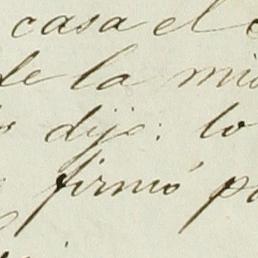 casa el
de la mis
dijo: lo
firmó pa